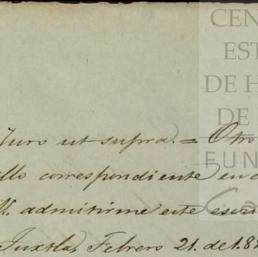 CEN
EST
DE H
DE
FUN
Juro ut supra. = Otro
llo correspondiente en
admitirme este escri
Tuxtla, Febrero 21. de 18